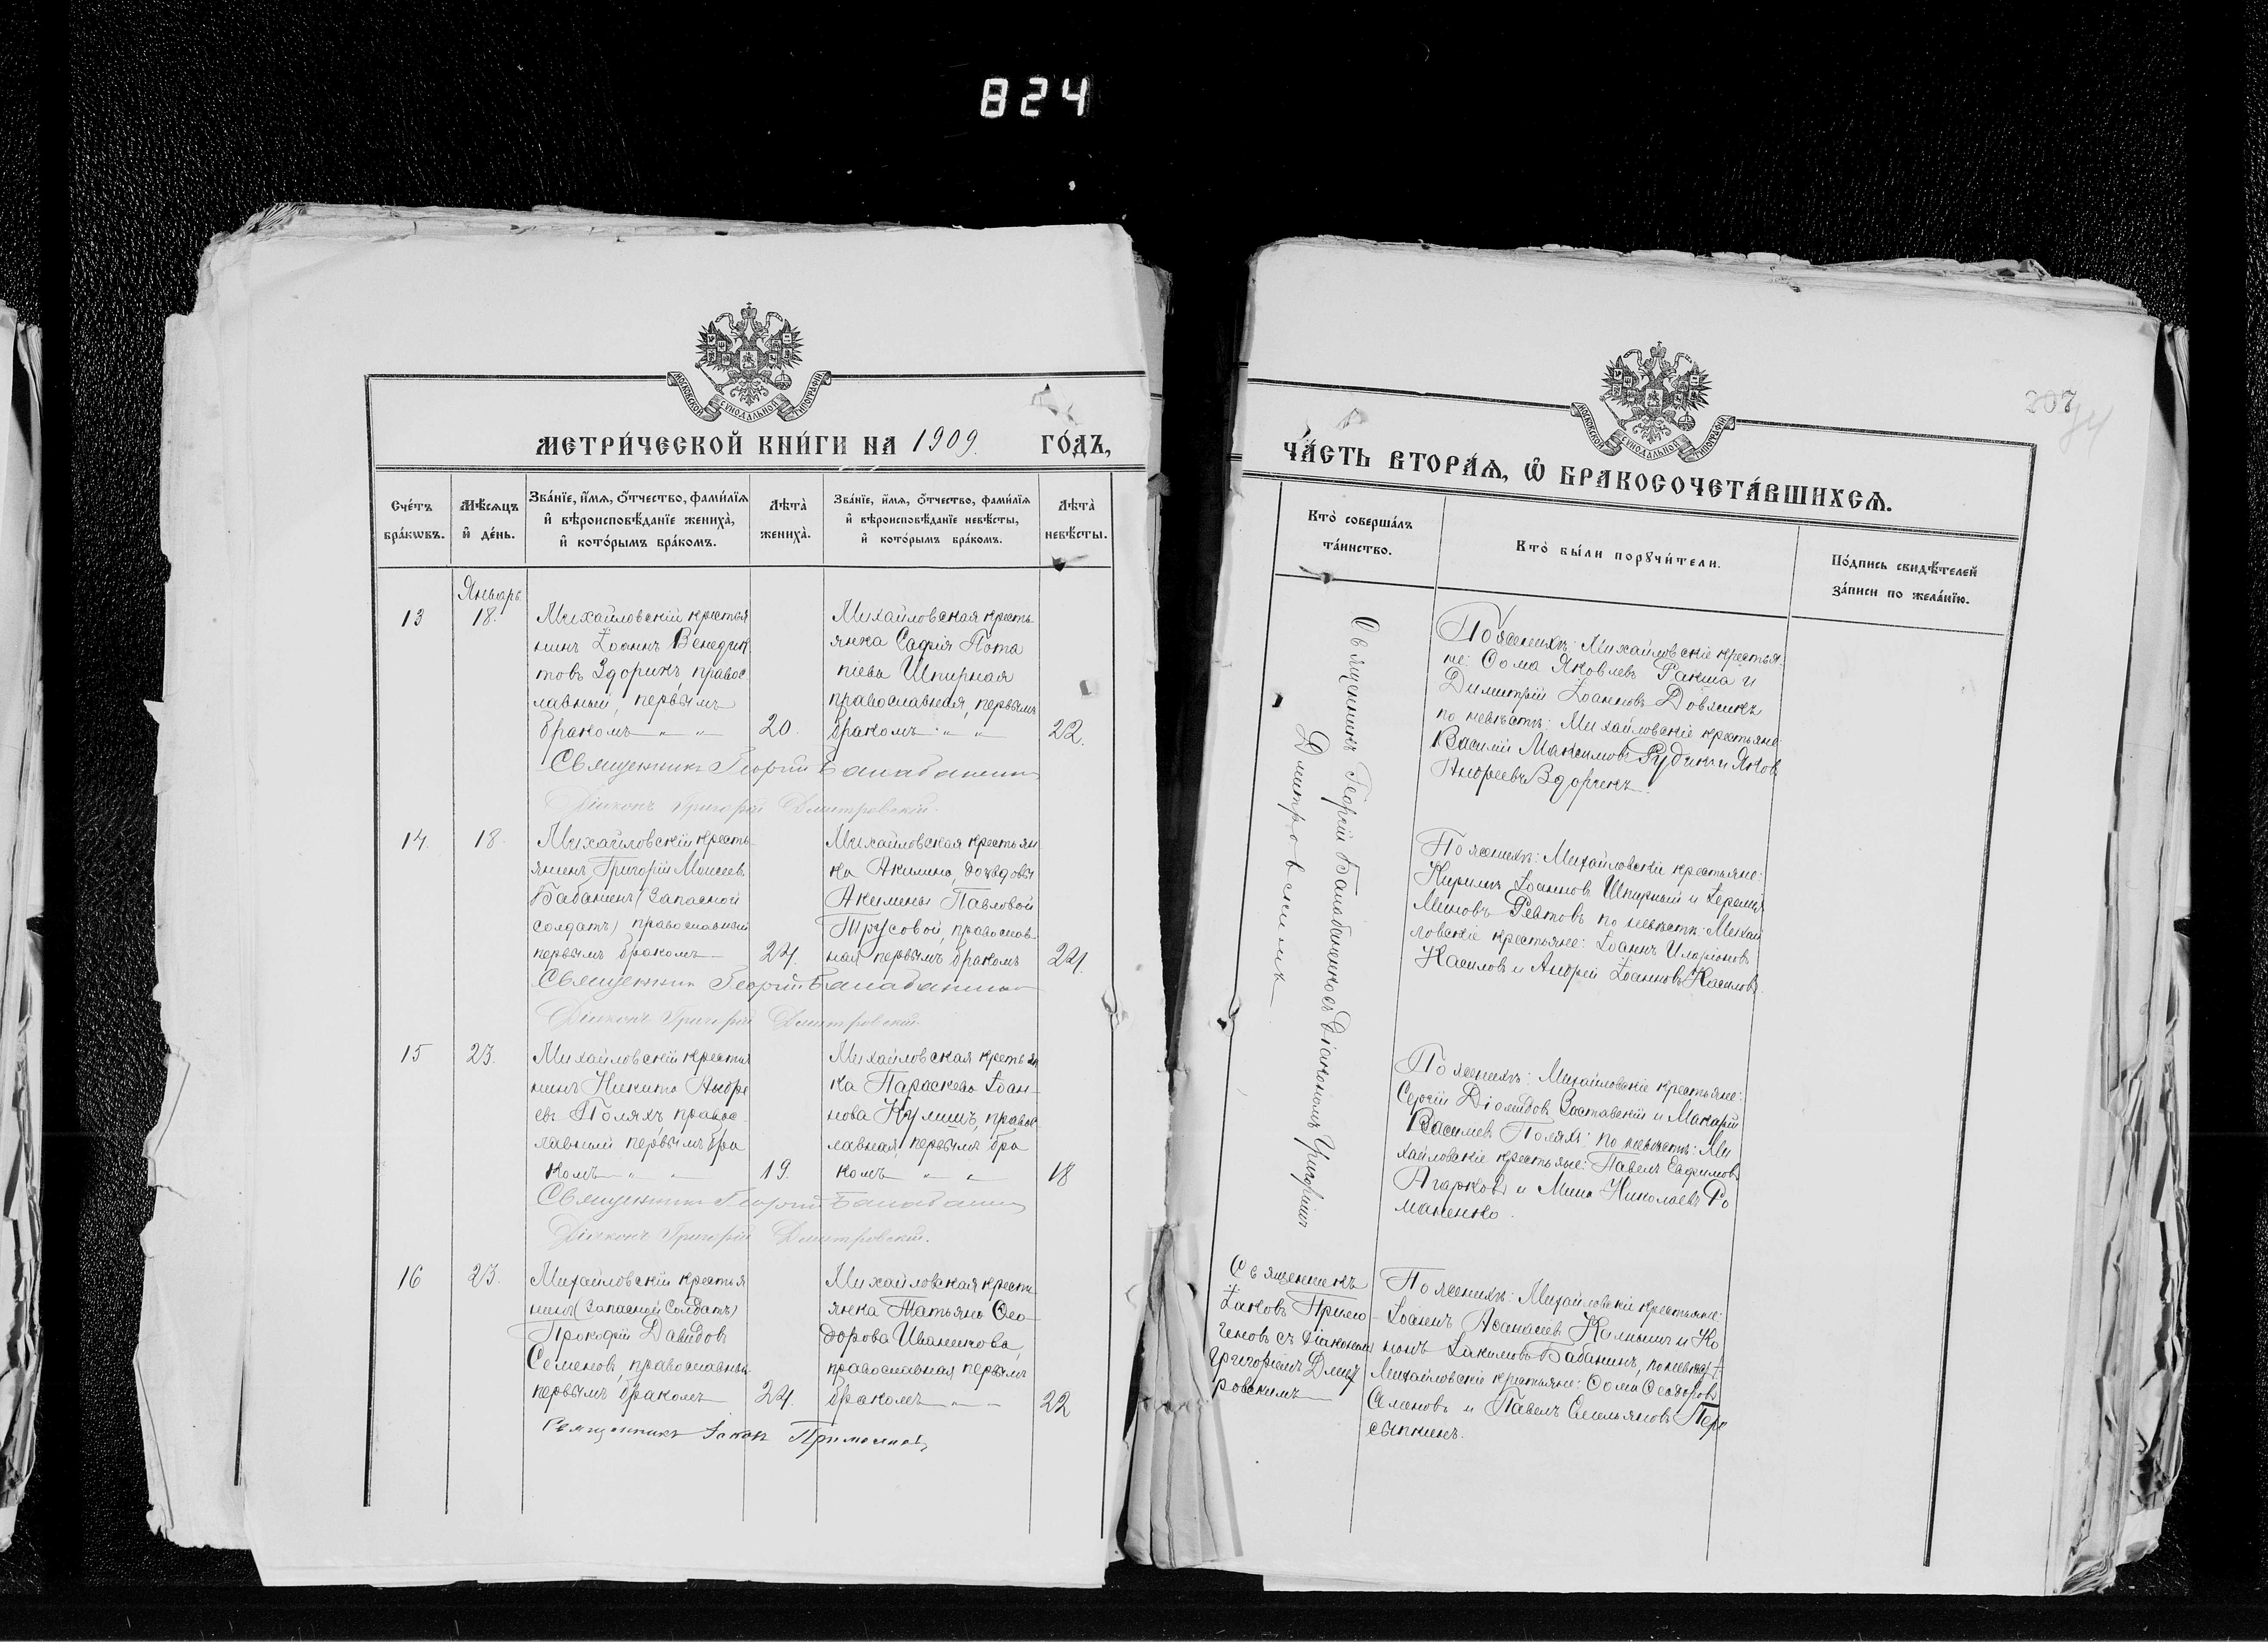 824
МОСКОВСКОЙ СѴНОДАЛЬНОЙ ТИПОГРАФІИ
МЕТРИ́ЧЕСКОЙ КНИ́ГИ НА 1909. ГО́ДЪ,
Сче́тъ бра́кѡвъ.
Мѣ́сяцъ и҆ де́нь.
Зва́нїе, и҆́мѧ, ѻ҆́тчество, фами́лїѧ и҆ вѣроисповѣ́данїе жениха̀, и҆ кото́рымъ бра́комъ.
Лѣта̀ жениха̀.
Зва́нїе, и҆́мѧ, ѻ҆́тчество, фами́лїѧ и҆ вѣроисповѣ́данїе невѣ́сты, и҆ кото́рымъ бра́комъ.
Лѣта̀ невѣ́сты.
Январь
13
18.
Михайловскій крестья
нинъ Іоаннъ Венедик
товъ Здорикъ, правос
лавный, первымъ
бракомъ — „ — „
20.
Михайловская кресть
янка Софія Пота
піева Шпирная
православная, первымъ
бракомъ — „ „
22.
Священникъ Георгій Балабаненко
Діаконъ Григорій Дмитровскій.
14.
18.
Михайловскій кресть
янинъ Григорій Моисеевъ
Бабанинъ (Запасной
солдатъ) православный
первымъ бракомъ —
24.
Михайловская крестьян
ка Акилина, дочь вдовы
Акилины Павловой
Трусовой, православ
ная первымъ бракомъ
24.
Священникъ Георгій Балабаненко
Діаконъ Григорій Дмитровскій.
15
23.
Михайловскій крестья
нинъ Никита Андре
евъ Поляхъ, правос
лавный первымъ бра
комъ — „ — „
19.
Михайловская крестьян
ка Параскева Іоан
нова Кулишъ, правос
лавная, первымъ бра
комъ — „ — „
18
Священникъ Георгій Балабаненко
Діаконъ Григорій Дмитровскій.
16
23.
Михайловскій крестья
нинъ (Запасной Солдатъ)
Прокофій Давидовъ
Семеновъ, православный
первымъ бракомъ
24.
Михайловская кресть
янка Татьяна Ѳео
дорова Иваненкова,
православная первымъ
бракомъ — „ —
22
Священникъ Іаковъ Примо
307
ЧА́СТЬ ВТОРА́Ѧ, Ѽ БРАКОСОЧЕТА́ВШИХСѦ.
МОСКОВСКОЙ СѴНОДАЛЬНОЙ ТИПОГРАФІИ
Кто̀ соверша́лъ та́инство.
Кто̀ бы́ли порꙋчи́тели.
По́дпись свидѣ́телей за́писи по жела́нїю.
Священникъ Георгій Балабаненко съ Діакономъ Григоріемъ
Дмитровскимъ
По женихѣ: Михайловскіе крестья
не: Ѳома Яковлевъ Ракша и
Димитрій Іоанновъ Довжикъ
по невѣстѣ: Михайловскіе крестьяне
Василій Максимовъ Рудикъ и Яковъ
Андреевъ Здорикъ.
По женихѣ: Михайловскіе крестьяне:
Кириллъ Іоанновъ Шпирный и Іеремія
Миновъ по невѣстѣ: Михай
ловскіе крестьяне: Іоаннъ Иларіоновъ
Касиловъ и Андрей Іоанновъ Касиловъ.
По женихѣ: Михайловскіе крестьяне:
Сергій Діомидовъ Заставскій и Макарій
Василіевъ Поляхъ: по невѣстѣ: Ми
хайловскіе крестьяне: Павелъ Евфимовъ
Агарковъ и Мина Николаевъ Ро
маненко.
Священникъ
Іаковъ Примо
геновъ съ Діакономъ
Григоріемъ Дмит
ровскимъ
По женихѣ: Михайловскіе крестьяне:
Іоаннъ Аѳанасіевъ Калнышъ и Ко
нонъ Іакимовъ Бабанинъ, по невѣстѣ
Михайловскіе крестьяне: Ѳома Ѳеодоровъ
Семеновъ и Павелъ Емельяновъ Пере
сыпкинъ.